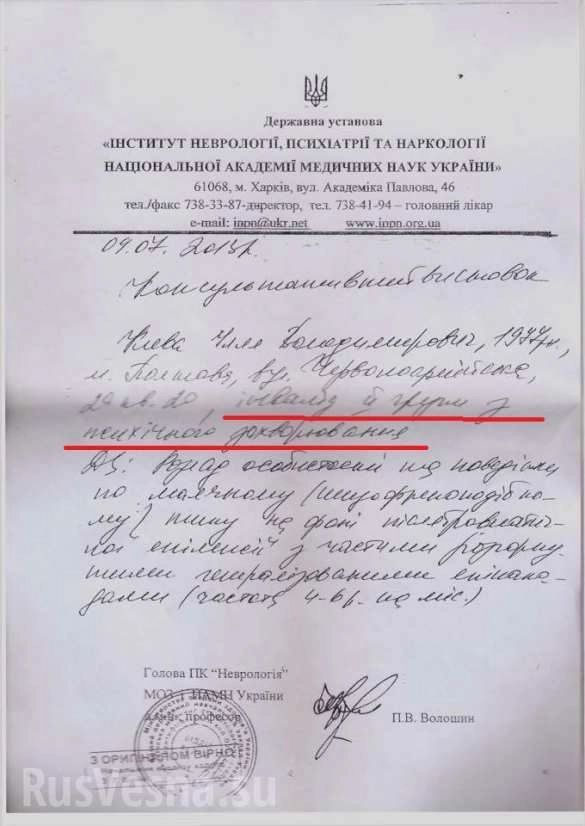 Державна установа
«ІНСТИТУТ НЕВРОЛОГІЇ, ПСИХІАТРІЇ ТА НАРКОЛОГІЇ
НАЦІОНАЛЬНОЇ АКАДЕМІЇ МЕДИЧНИХ НАУК УКРАЇНИ»
61068, м. Харків, вул. Академіка Павлова, 46
тел./факс 738-33-87-директор, тел. 738-41-94 – головний лікар
e-mail: inpn@ukr.net www.inpn.org.ua
09.07.2013р.
Консультативний висновок
Володимирович, 1977р.,
м. Полтава, вул. Червоноармійська,
інвалід ІІ групи з
психічного захворювання
DS: Розлад особистості та поведінки
по маячному (шизофреноподібно-
му) типу на фоні післятравматич-
ної епілепсії з частими
генералізованими епінапа-
дами (частота 4-6р. на міс.)
Голова ПК “Неврологія”
МОЗ і НАМН України
д.м.н., професор
П.В. Волошин
З ОРИГІНАЛОМ ВІРНО
RusVesna.su